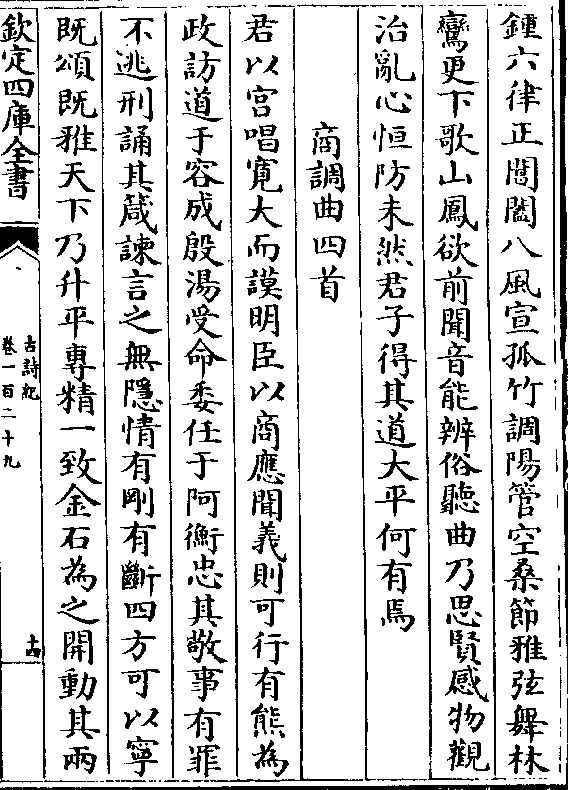 鍾六律正閶闔八風宣孤竹調陽管空桑節雅弦舞林
鸞更下歌山鳳欲前聞音能辨俗聽曲乃思賢感物觀
治亂心恒防未然君子得其道大平何有焉
商調曲四首
君以宫唱寛大而謨明臣以商應聞義則可行有熊為
政訪道于容成殷湯受命委任于阿衡忠其敬事有罪
不逃刑誦其箴諫言之無隱情有剛有斷四方可以寧
既頌既雅天下乃升平專精一致金石為之開動其兩
欽定四庫全書
古詩紀
卷一百二十九
十四